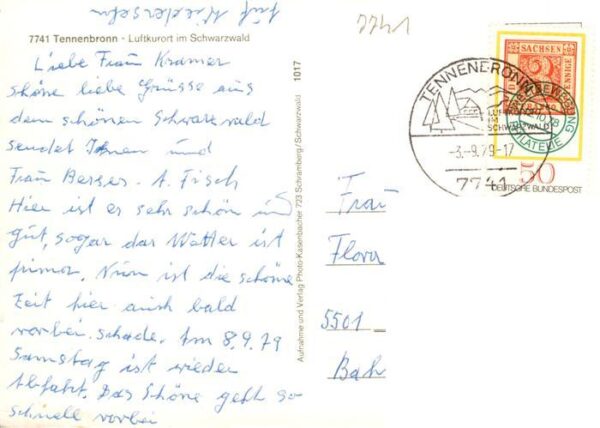 auf Wiedersehn
7741
7741 Tennenbronn - Luftkurort im Schwarzwald
Liebe Frau Kramer
schöne liebe Grüsse aus
dem schönen Schwarzwald
sendet Ihnen und
Frau A. Fisch
Hier ist es sehr schön und
gut, sogar das Wetter ist
prima. Nun ist die schöne
Zeit hier auch bald
vorbei. schade. Am 8.9.79
Samstag ist wieder
Abfahrt. Das Schöne geht so
schnell vorbei
1017
Aufnahme und Verlag Photo-Kasenbacher 723 Schramberg/Schwarzwald
TENNENBRONN
LUFTKURORT
IM
SCHWARZWALD
-3.-9.79-17
7741
SACHSEN
3
PFENNIGE
PHILATELIE
50
DEUTSCHE BUNDESPOST
Frau
Flora
5501
Bah